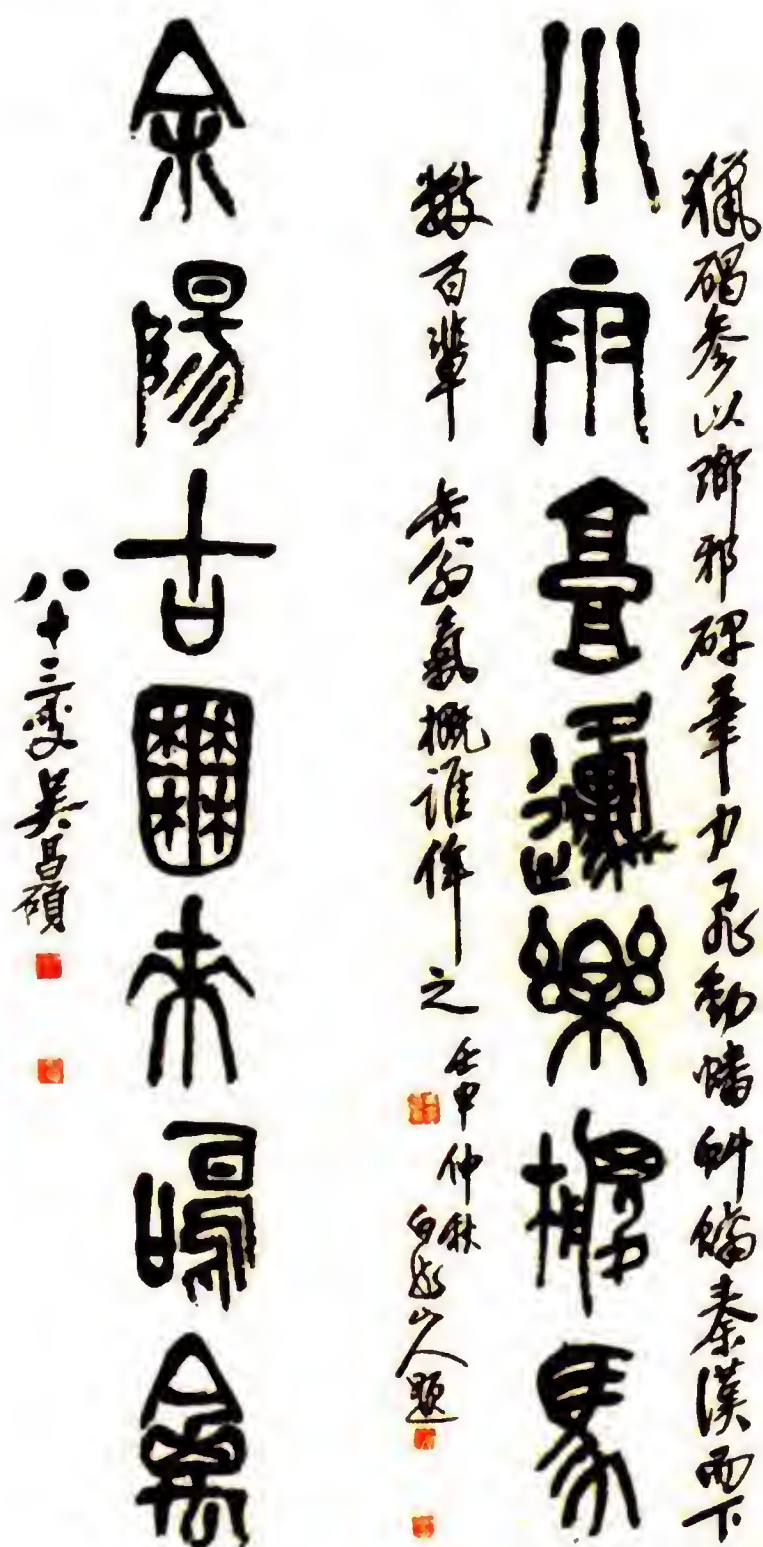 獵碣參以瑯邪碑筆力飛動幡蚪螭秦漢而下
小雨邍樂馬
數百輩缶翁氣概誰侔之
壬申仲秋
白龍山人題
余陽古囿來禽
八十三叟吳昌碩